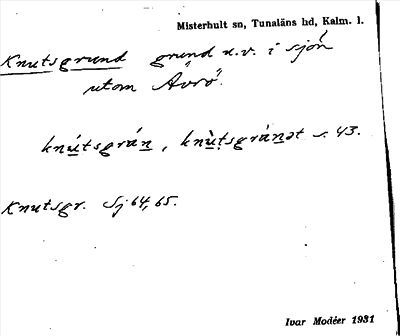 Misterhult sn, Tunaläns hd, Kalm. l.
Knutsgrund grund u.v. i sjön
utom Ävrö.
knu̲tsgrán̲, knù̲tsgrán̲ət s. 43.
Knutsgr. Sj 64, 65.
Ivar Modéer 1931